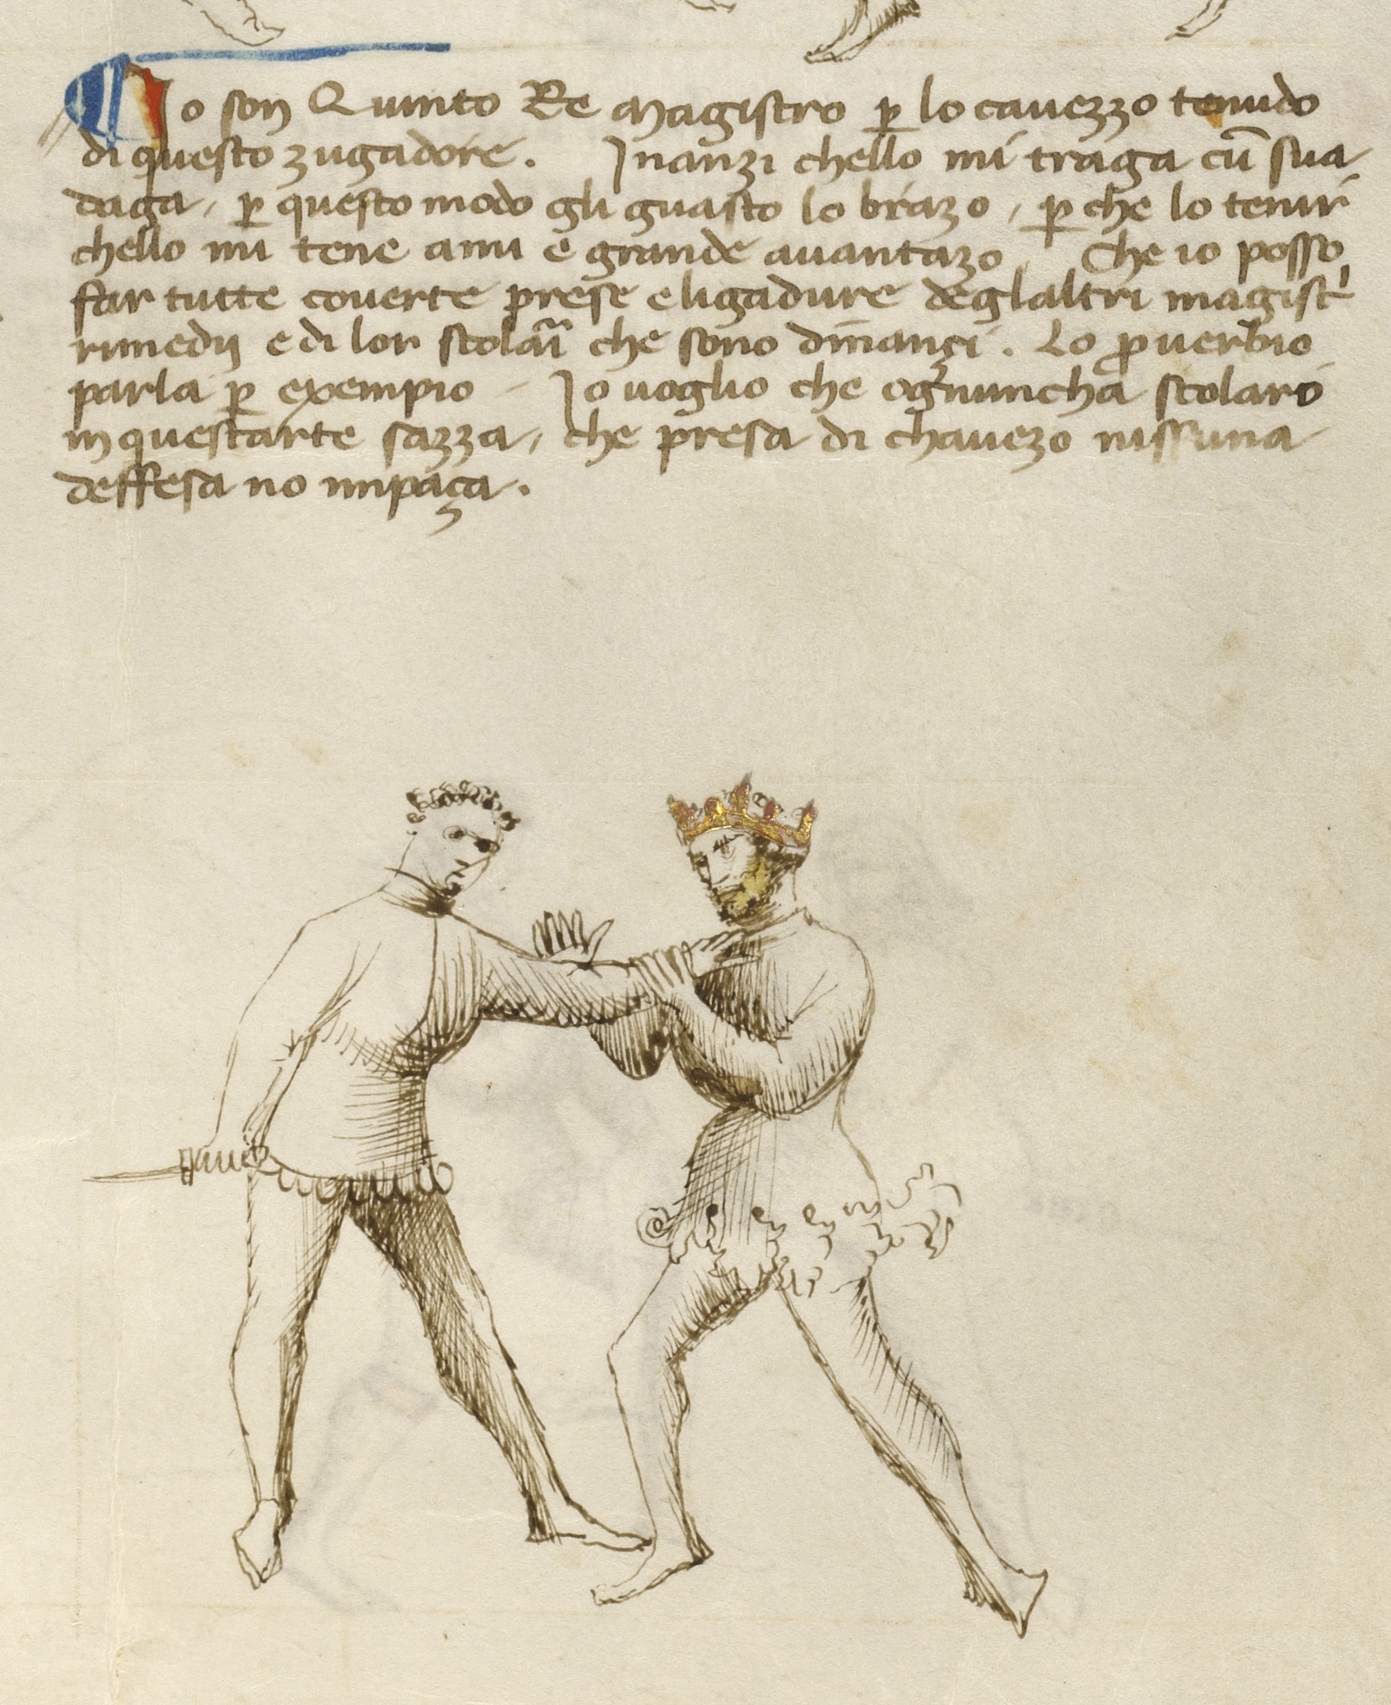 Io son Quinto Re Magistro p lo cauezzo tenudo
di questo zugadore. Inanzi chello mi traga cū sua
daga, p questo modo gli guasto lo brazo, p che lo tenir
chello mi tene a mi e grande auantazo. Che io posso
far tutte couerte prese e ligadure deglaltri magistri
rimedij e di lor scolari che sono dinançi. Lo puerbio
parla p exempio Io uoglio che ognuncha scolaro
in questarte sazza, che presa di chauezo nissuna
deffesa no impaça.